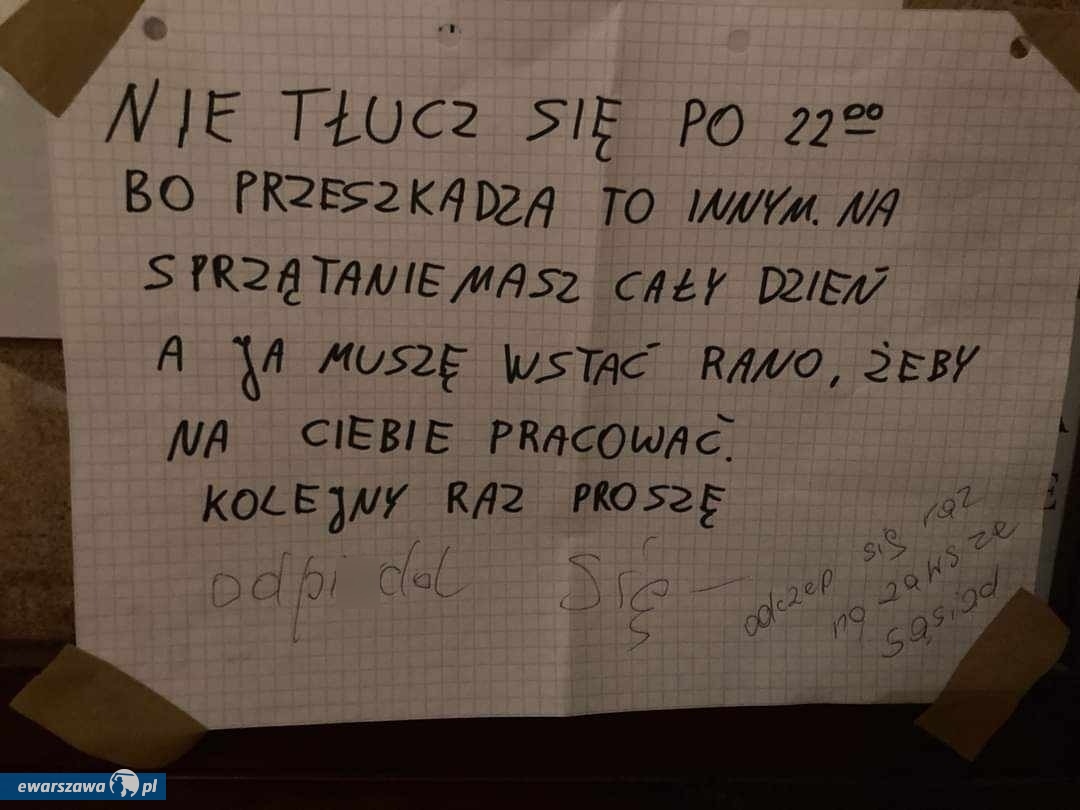 NIE TŁUCZ SIĘ PO 22⁰⁰
BO PRZESZKADZA TO INNYM. NA
SPRZĄTANIE MASZ CAŁY DZIEŃ
A JA MUSZĘ WSTAĆ RANO, ŻEBY
NA CIEBIE PRACOWAĆ.
KOLEJNY RAZ PROSZĘ
odpi dol Się –
odczep się raz
na zawsze
sąsiad
ewarszawa.pl